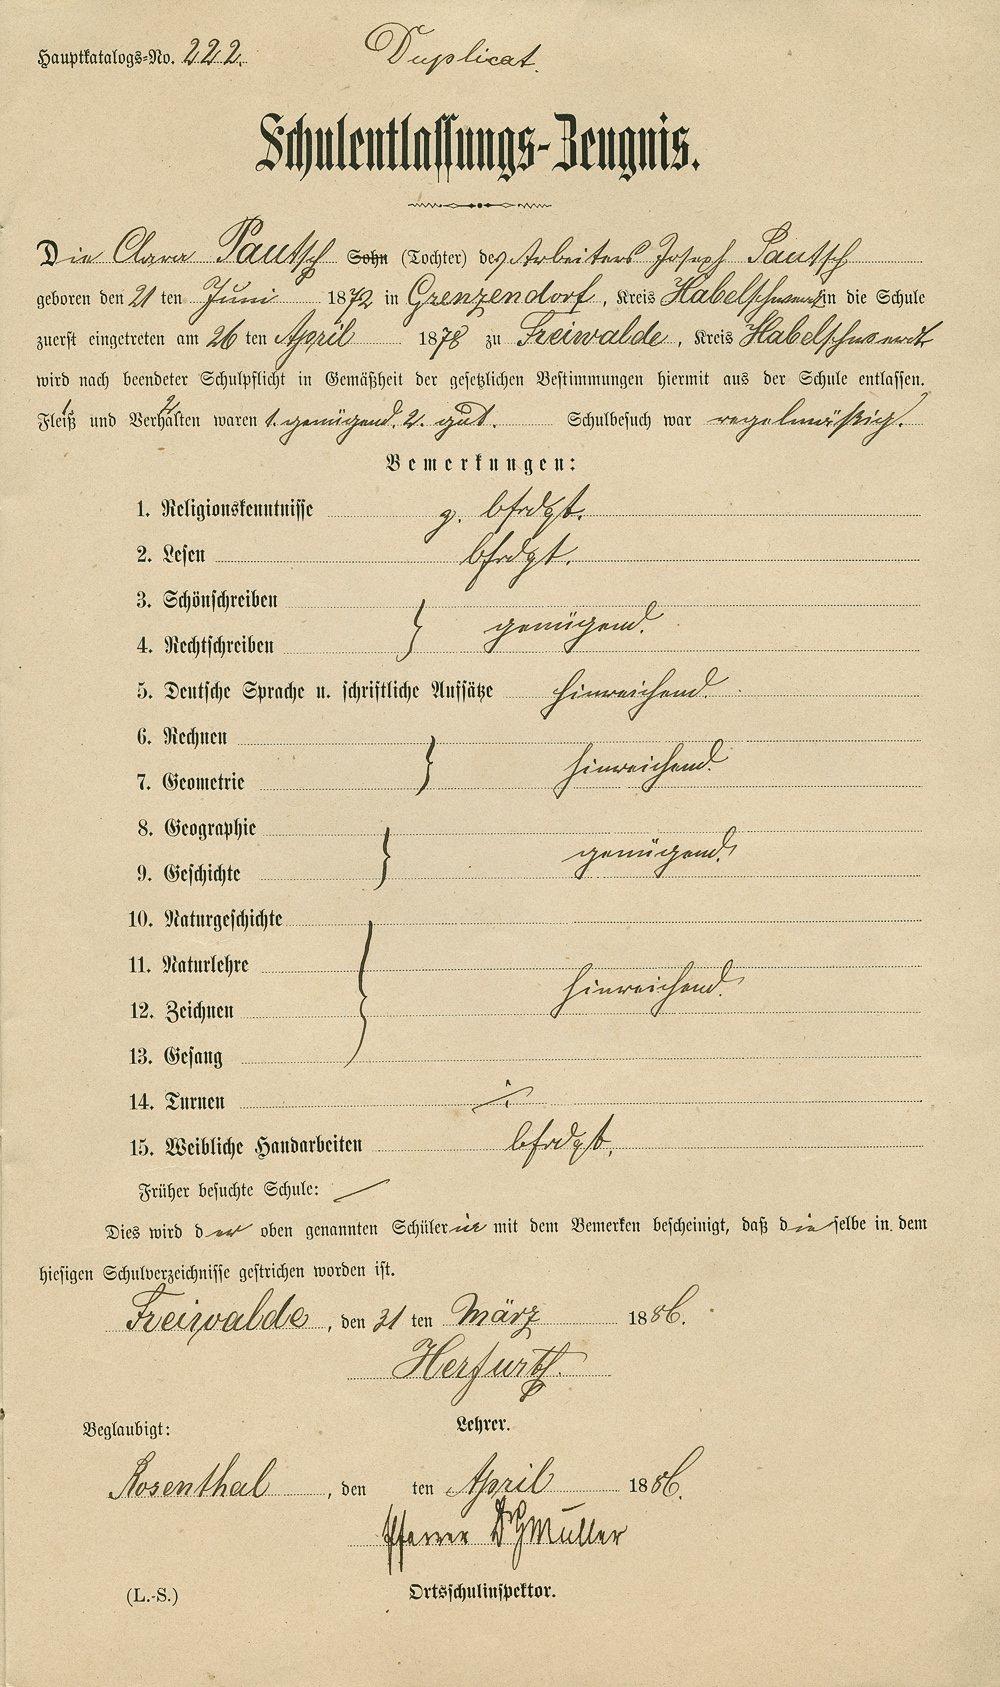 Hauptkatalogs-No. 222. Duplicat.
Schulentlassungs-Zeugnis.
Die Clara Pautsch Sohn (Tochter) des Arbeiters Joseph Pautsch
geboren den 21 ten Juni 1872 in Grenzendorf, Kreis Habelschwerdt in die Schule
zuerst eingetreten am 26 ten April 1878 zu Freiwalde, Kreis Habelschwerdt
wird nach beendeter Schulpflicht in Gemäßheit der gesetzlichen Bestimmungen hiermit aus der Schule entlassen.
Fleiß und Verhalten waren 1. genügend. 2. gut. Schulbesuch war regelmäßig.
Bemerkungen:
1. Religionskenntnisse g. bfrdgt.
2. Lesen bfrdgt.
3. Schönschreiben
genügend.
4. Rechtschreiben
5. Deutsche Sprache u. schriftliche Aufsätze hinreichend.
6. Rechnen
hinreichend.
7. Geometrie
8. Geographie
genügend.
9. Geschichte
10. Naturgeschichte
11. Naturlehre
hinreichend.
12. Zeichnen
13. Gesang
14. Turnen
15. Weibliche Handarbeiten bfrdgt.
Früher besuchte Schule: —
Dies wird der oben genannten Schülerin mit dem Bemerken bescheinigt, daß dieselbe in dem
hiesigen Schulverzeichnisse gestrichen worden ist.
Freiwalde, den 31 ten März 1886.
Herfurth.
Lehrer.
Beglaubigt:
Rosenthal, den ten April 1886.
Pfarrer Müller
(L.-S.) Ortsschulinspektor.